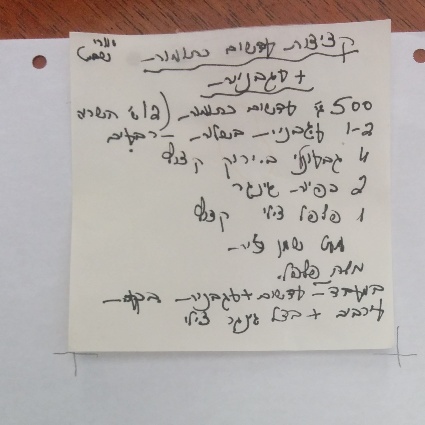 קציצות עדשים כתומות
+ עגבניות
500 גר' עדשים כתומות (12 ש' השריה
1-2 עגבניות בשלות – רבעים
4 גבעולי ב. ירוק קצוץ
2 כפיות ג'ינג'ר
1 פלפל צ'ילי קצוץ
מעט שמן זית
מלח פלפל.
במעבד – עדשים + עגבניות
מערבבים + בצל ג'ינג'ר צ'ילי